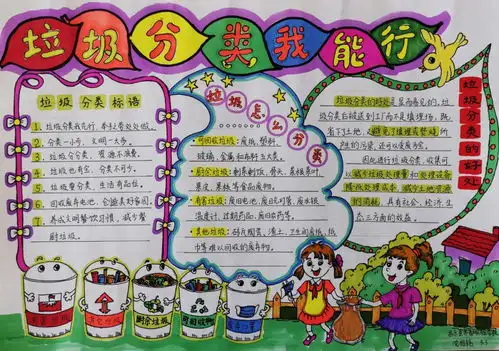 垃圾分类我能行
垃圾分类标语
1、垃圾分类我先行,
2、分类一小步,文明一大步。
3、垃圾分分类,资源不浪费。
4、垃圾也有家,分类不可少。
5、垃圾要分类,生活有品位。
6、回收废弃电池,创造美好家园。
7、养成文明餐饮习惯,减少餐
厨垃圾。
垃圾怎么分类
·可回收垃圾:废纸、塑料、
玻璃、金属和布料五大类。
·厨余垃圾:剩菜剩饭、骨头、菜根菜叶、
果皮、果核等食品废物。
·有害垃圾:废旧电池、废日光灯管、废水银
温度计、过期药品、
·其他垃圾:砖瓦陶瓷、渣土、卫生间废纸、纸
巾等难以回收的废弃物。
垃圾分类的好处
垃圾分类的好处是显而易见的。垃
圾分类后被送到工厂而不是填埋场,既
省下了土地,避免了填埋或焚烧所
产生的污染,还可以变废为宝。
因此进行垃圾分类,收集可
以减少垃圾处理量和处理设备,
降低处理成本,减少土地资源
的消耗,具有社会、经济、生
态三方面的效益。
厨余垃圾
可回收物